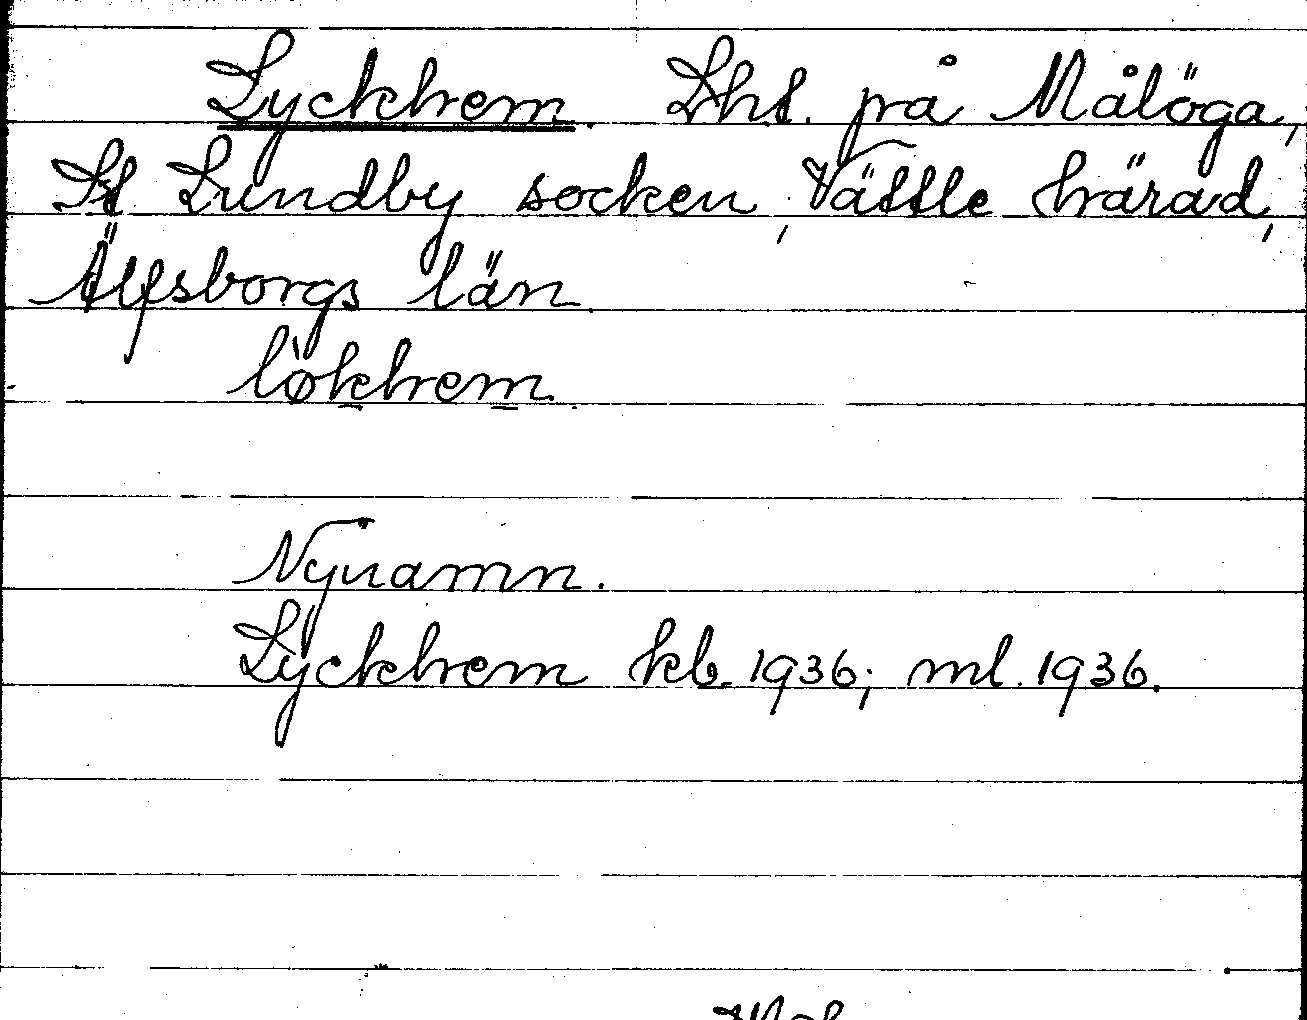 Lyckhem. Lht. på Målöga,
St Lundby socken, Vättle härad,
Älfsborgs län
løkhem.
Nynamn.
Lyckhem kb. 1936; ml. 1936.